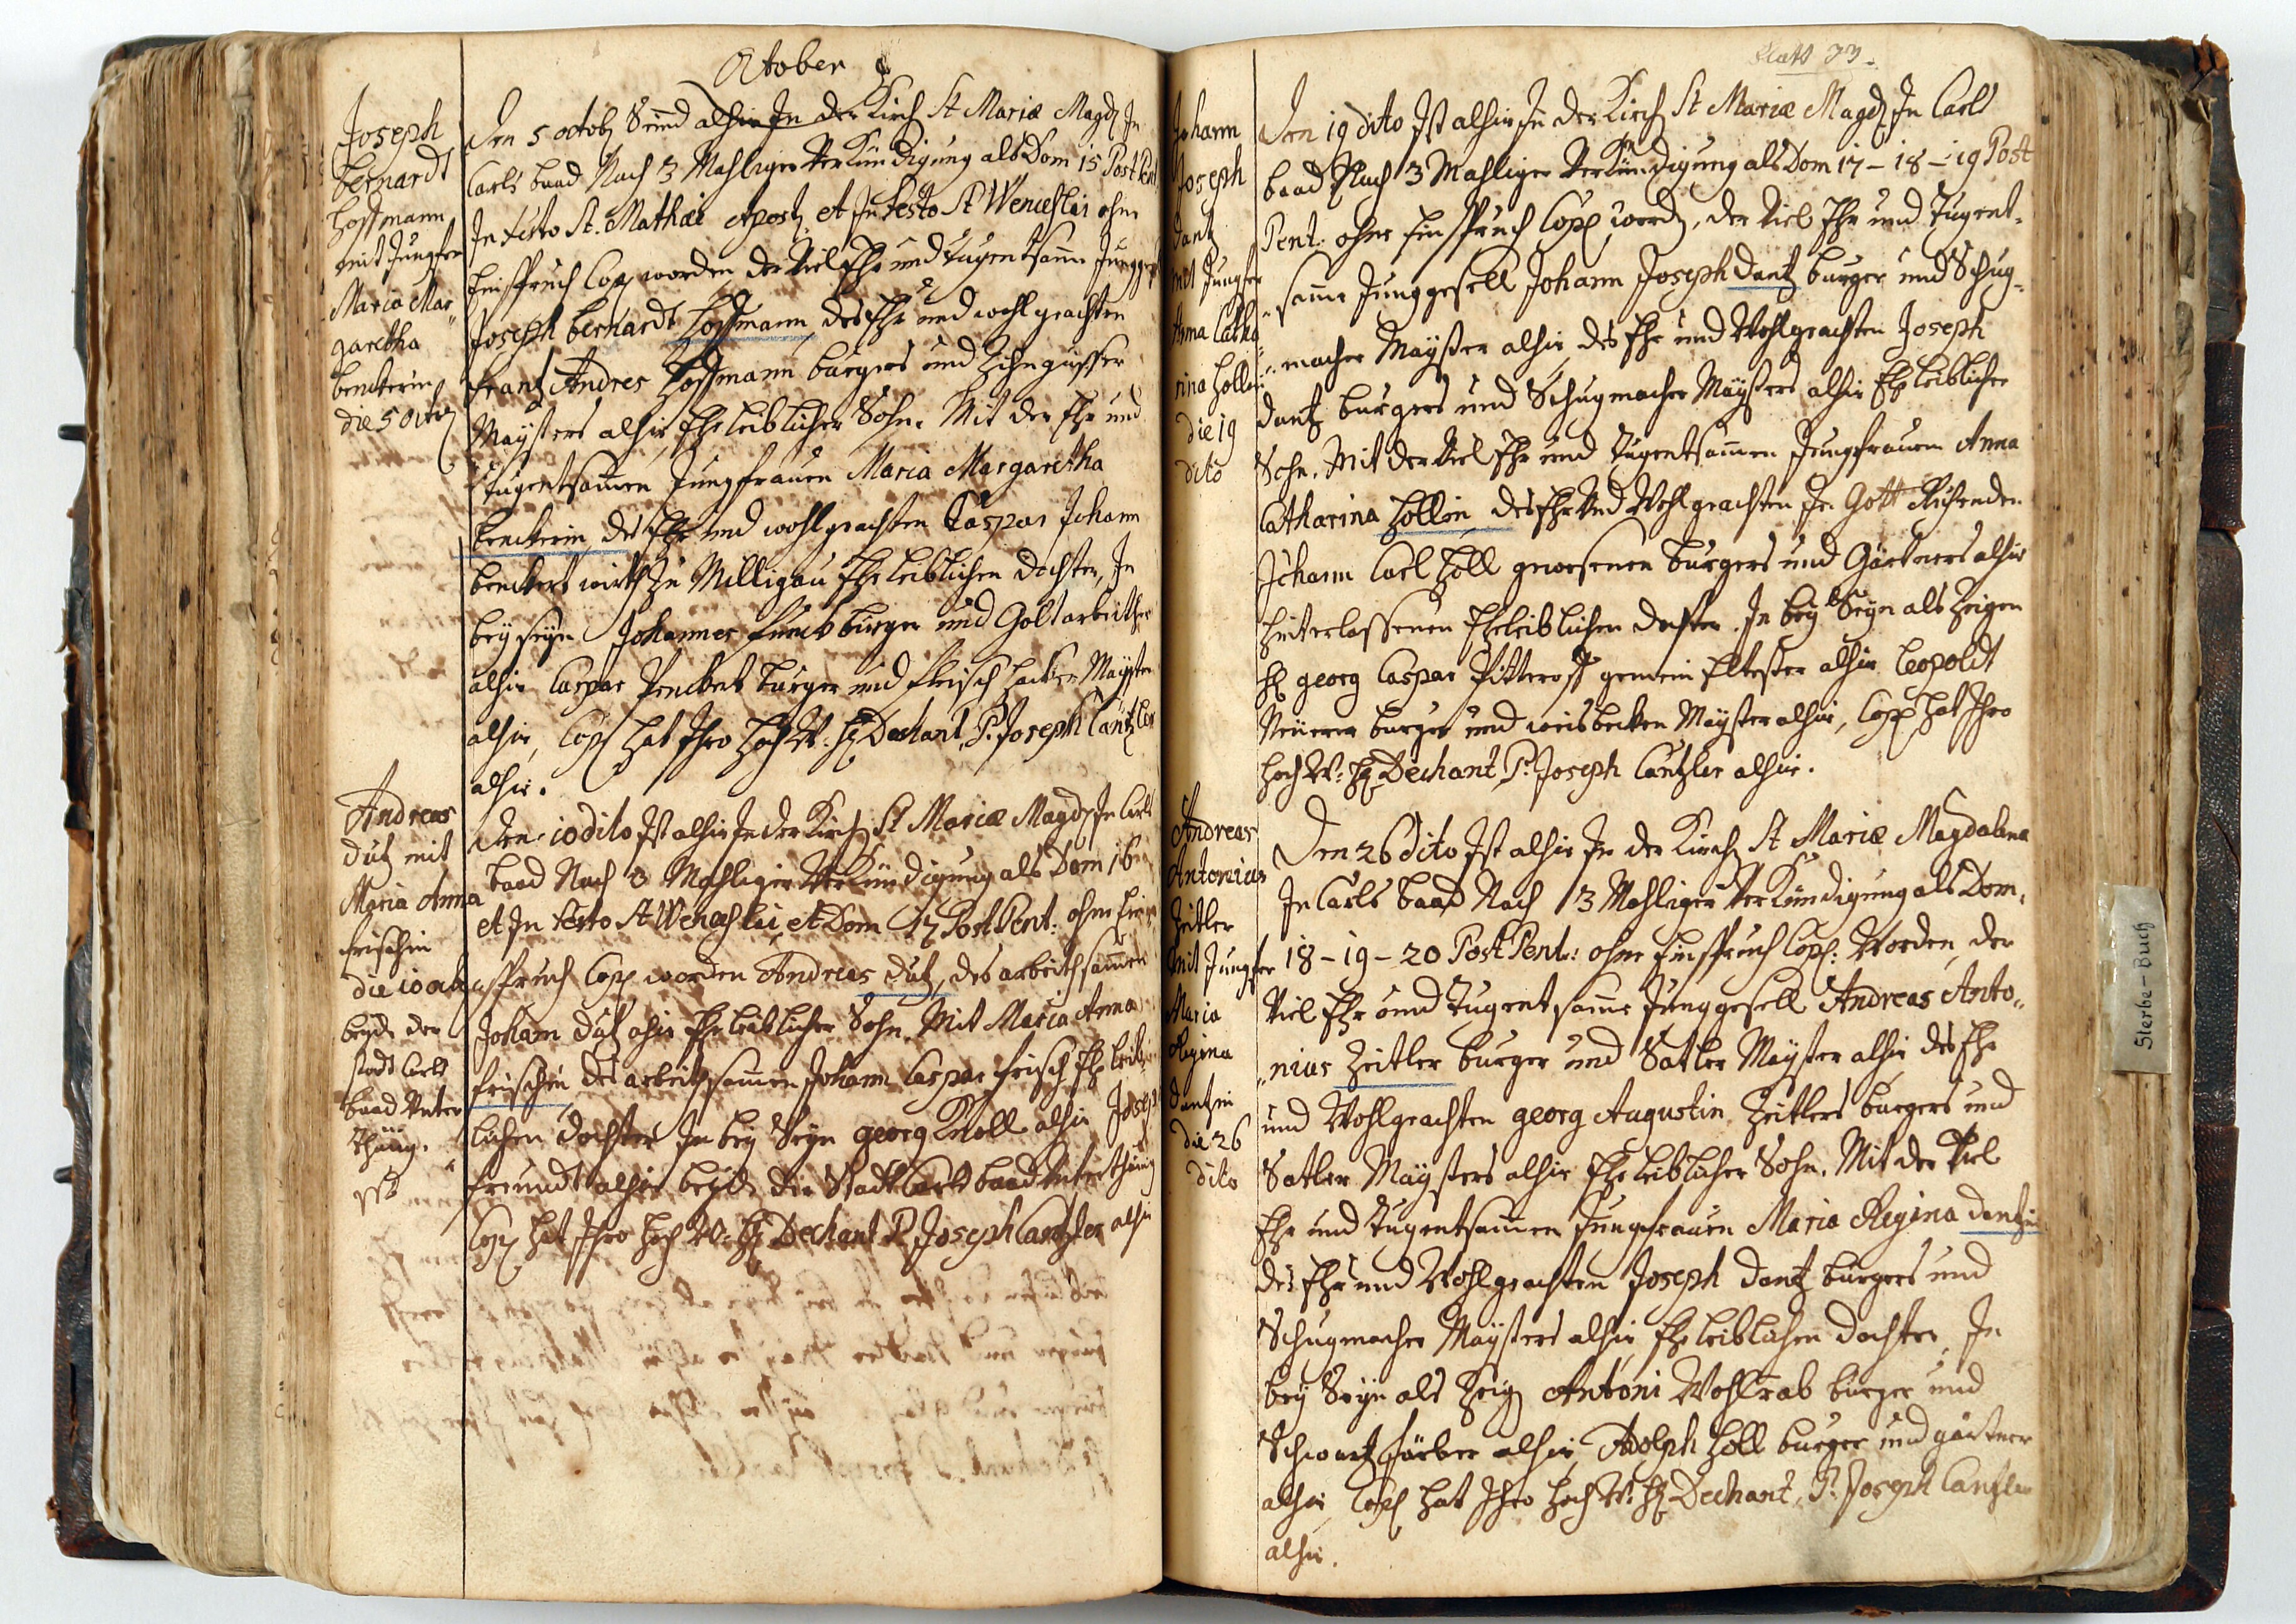 October
Joseph
bernardt
Hoffmann
mit Jungfer
Maria Mar„
garetha
benckerin
die 5 octob
Den 5 octob Seind alhir In der Kirch St Mariæ Magd In
Carls baad Nach 3 Mahliger Verkündigung als Dom 15 Post Pent
In festo St. Mathæi Apost et In festo St Wenceslai ohne
Einspruch Cop worden der Viel Ehr und Tugentsame Junggesell
Joseph bernardt Hoffmann des Ehr und wohl geachten
Frantz Andres Hoffmann burgers und Zihngusser
Maÿsters alhir Eheleiblicher Sohn. Mit der Ehr und
Tugentsamen Jungfrauen Maria Margaretha
benckerin des Ehr und wohl geachten Caspar Johann
benckert wirth zu Milligau Ehe leiblichen dochter, In
beÿseÿn Johannes Funck burger und Goltarbeither
alhir Caspar burger und fleisch hacker Maÿster
alhir, Cop hat Ihro Hoch W: H Dechant, P. Joseph Cantzler
alhir.
Andreas
dutz mit
Maria Anna
frischin
die 10 octob
beÿde der
stadt Carls
baad Unter
thanig.
Den 10 dito Ist alhir In der Kirch St Mariæ Magd In Carls
baad Nach 3 Mahliger Verkündigung als Dom 16
et In festo St Wenceslai et Dom 17 Post Pent: ohne Ein
spruch Cop worden Andreas dutz, des arbeithsamen
Johann dutz alhir Eheleiblicher Sohn. Mit Maria Anna
frischin des arbeithsamen Johann Caspar frisch Ehe leib
lichen dochter In beÿ Seÿn georg Knoll alhir Joseph
freundt alhir beÿde der Stadt Carls baad unterthänig
Cop hat Ihro Hoch W: H Dechant P Joseph Cantzler alhir
Blatt 33.
Johann
Joseph
dantz
mit Jungfer
Anna Catha
rina Hollin
die 19
dito
Den 19 dito Ist alhir In der Kirch St Mariæ Magd In Carls
baad Nach 3 Mahliger Verkündigung als Dom 17 - 18 - 19 Post
Pent: ohne Einspruch Cop word, der Viel Ehr und Tugent„
„same Junggesell Johann Joseph dantz burger und Schug„
„macher Maÿster alhir, des Ehr und Wohlgeachten Joseph
dantz burgers und Schugmacher Maÿsters alhir Ehe leiblicher
Sohn. Mit der Viel Ehr und Tugentsamen Jungfrauen Anna
Catharina Hollin des Ehr und Wohl geachten In Gott Ruhenden
Johann Carl Holl gewesenen burgers und Gärtners alhir
hinterlassenen Eheleiblichen dochter. In beÿ Seÿn als Zeigen
H georg Caspar Pitteroff gemein Eltester alhir Leopoldt
Neuerer burger und weisbecken Maÿster alhir, Cop hat Ihro
hoch W: H Dechant, P. Joseph Cantzler alhir.
Andreas
Antonius
Zeitler
Mit Jungfer
Maria
Regina
dantzin
die 26
dito
Den 26 dito Ist alhir In der Kirch St Mariæ Magdalena
In Carls baad Nach 3 Mahliger Verkündigung als Dom,
18 - 19 - 20 Post Pent: ohne Einspruch Cop: Worden, der
Viel Ehr und Tugentsame Junggesell Andreas Anto„
„nius Zeitler burger und Satler Maÿster alhir des Ehr
und Wohlgeachten georg Augustin Zeitlers burgers und
Satler Maÿsters alhir Eheleiblicher Sohn. Mit der Viel
Ehr und Tugentsamen Jungfrauen Maria Regina dantzin
des Ehr und Wohlgeachten Joseph dantz burgers und
Schugmacher Maÿsters alhir Eheleiblichen dochter, In
beÿ Seÿn als Zeig Antoni Wohlrab burger und
Schwartz färber alhir, Adolph Holl burger und gärtner
alhir Cop hat Ihro hoch W: H Dechant, P. Joseph Cantzler
alhir.
Sterbe-Buch